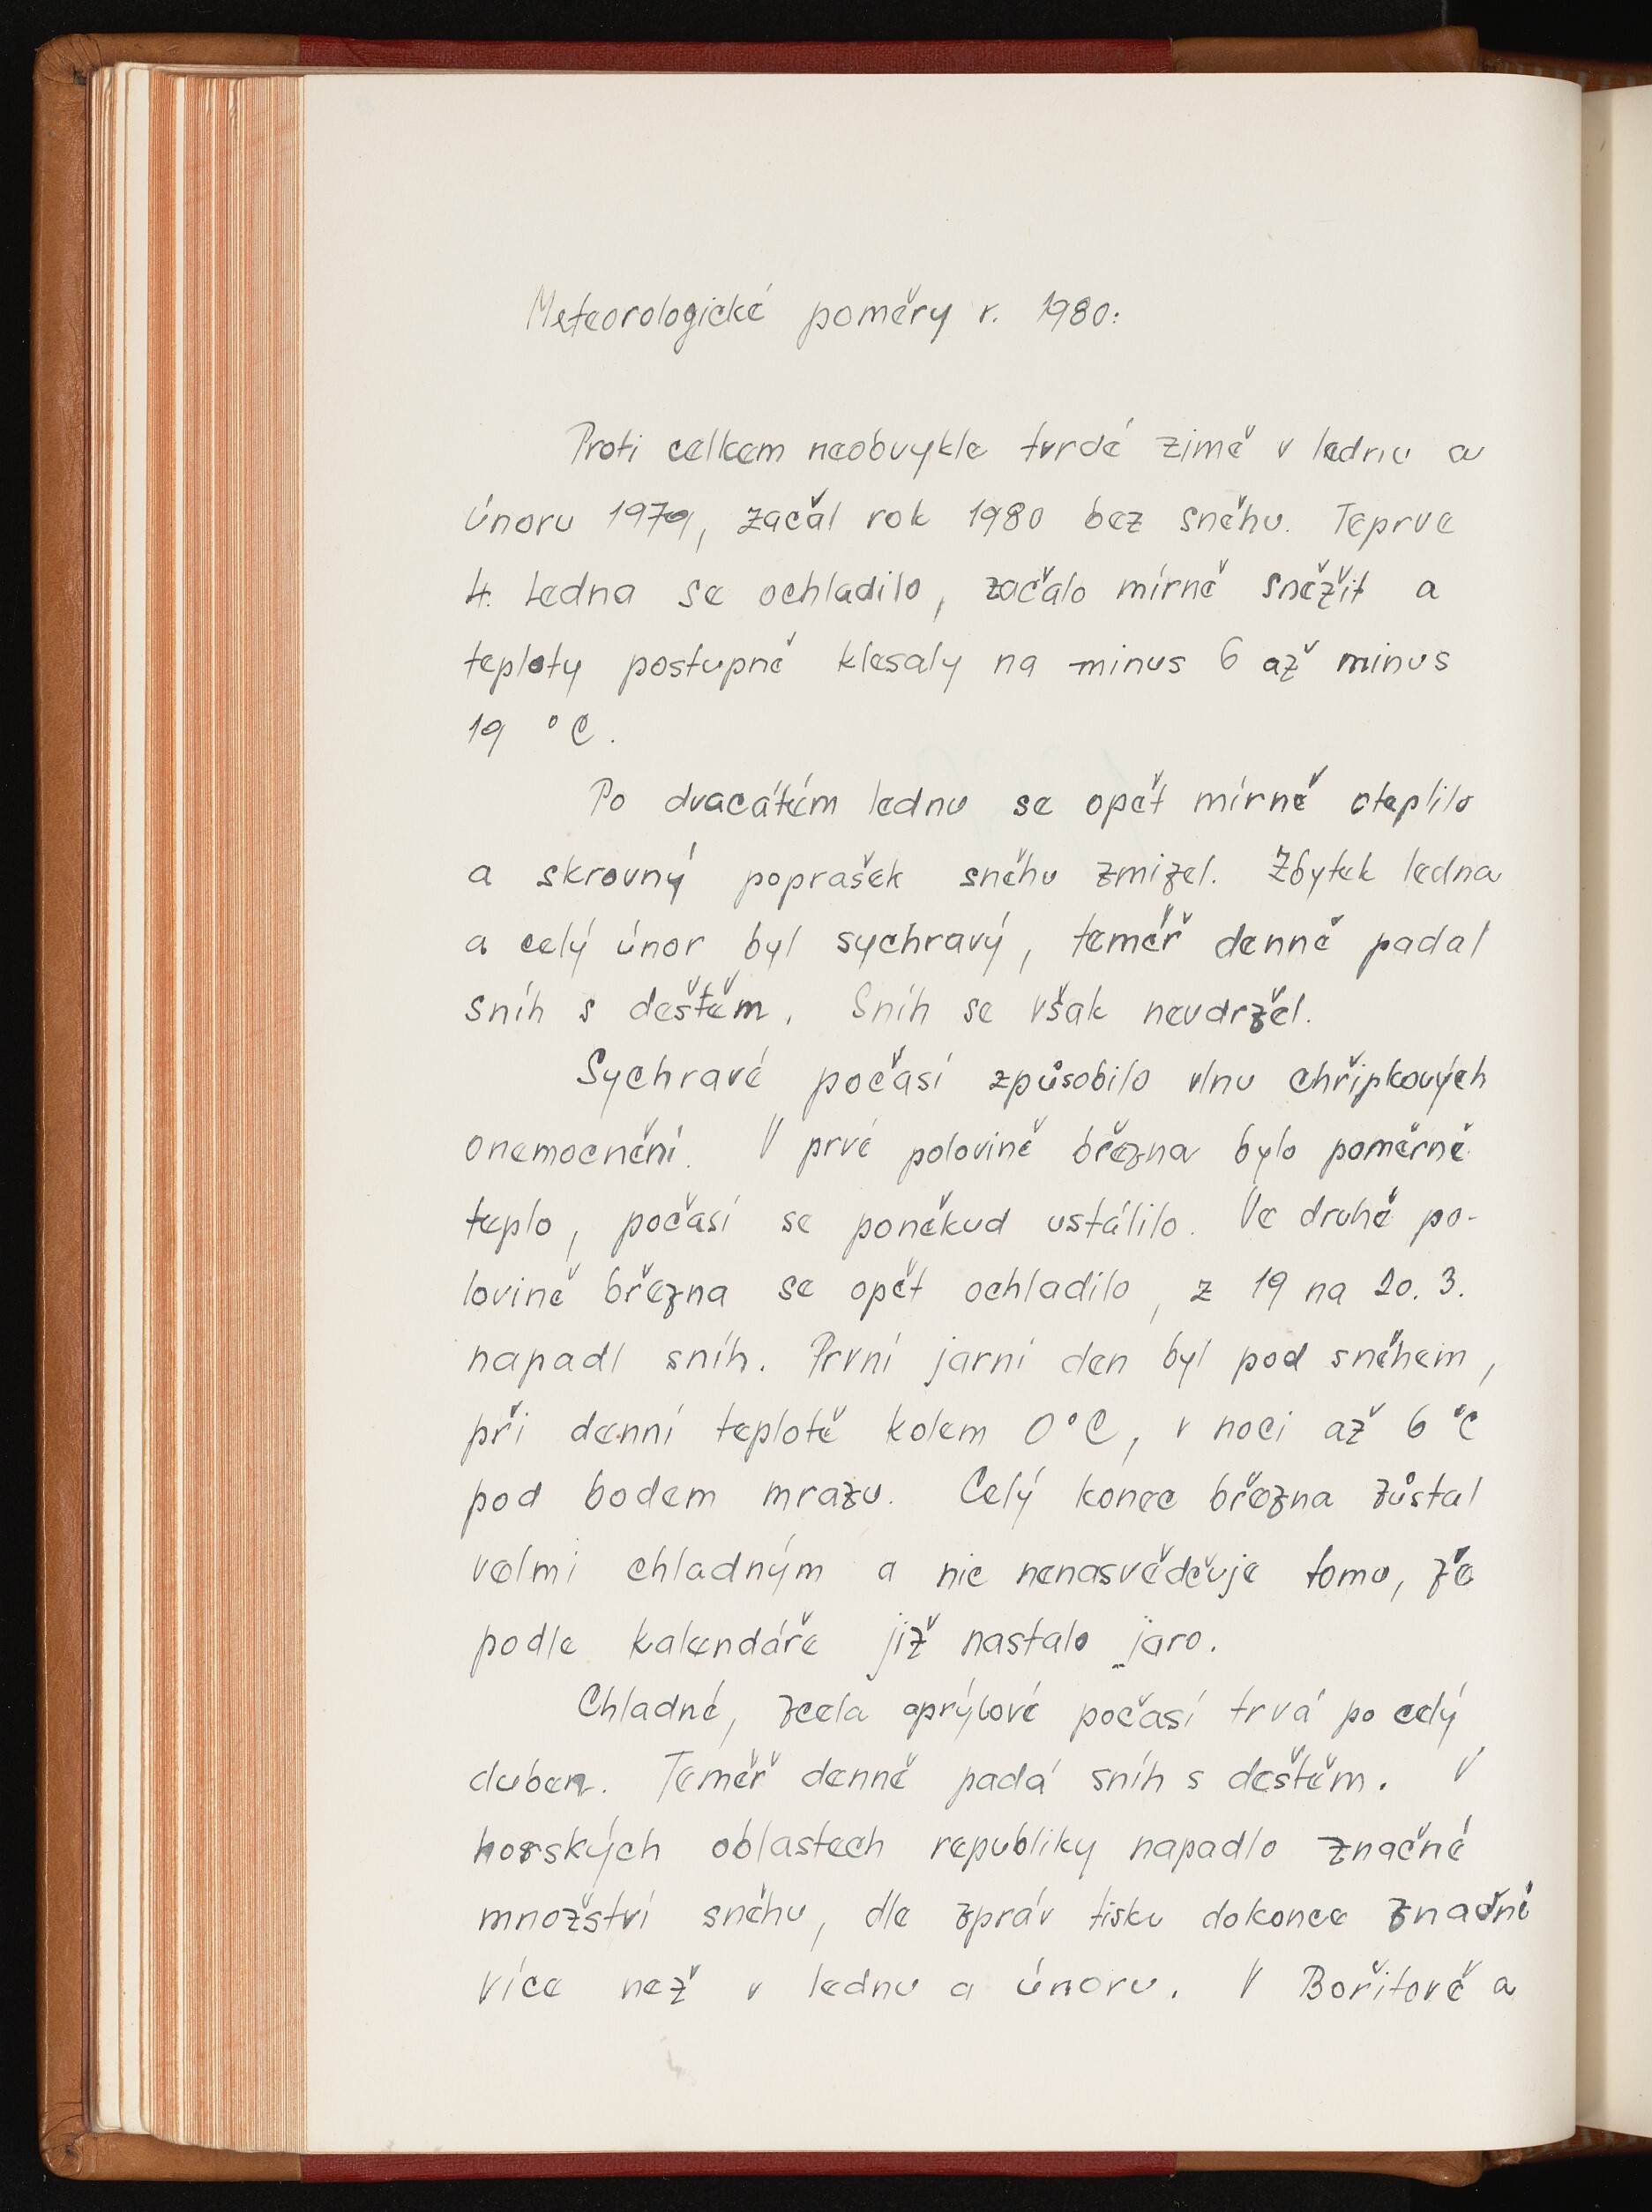 Meteorologické poměry r. 1980:
Proti celkem neobvykle tvrdé zimě v lednu a
únoru 1979, začal rok 1980 bez sněhu. Teprve
4. ledna se ochladilo, začalo mírně sněžit a
teploty postupně klesaly na minus 6 až minus
19 °C.
Po dvacátém lednu se opět mírně oteplilo
a skrovný poprašek sněhu zmizel. Zbytek ledna
a celý únor byl sychravý, téměř denně padal
sníh s deštěm. Sníh se však neudržel.
Sychravé počasí způsobilo vlnu chřipkových
onemocnění. V prvé polovině března bylo poměrně
teplo, počasí se poněkud ustálilo. Ve druhé po-
lovině března se opět ochladilo, z 19 na 20. 3.
napadl sníh. První jarní den byl pod sněhem,
při denní teplotě kolem 0°C, v noci až 6 °C
pod bodem mrazu. Celý konec března zůstal
velmi chladným a nic nenasvědčuje tomu, že
podle kalendáře již nastalo jaro.
Chladné, zcela aprýlové počasí trvá po celý
duben. Téměř denně padá sníh s deštěm. V
horských oblastech republiky napadlo značné
množství sněhu, dle zpráv tisku dokonce značně
více než v lednu a únoru. V Bořitově a